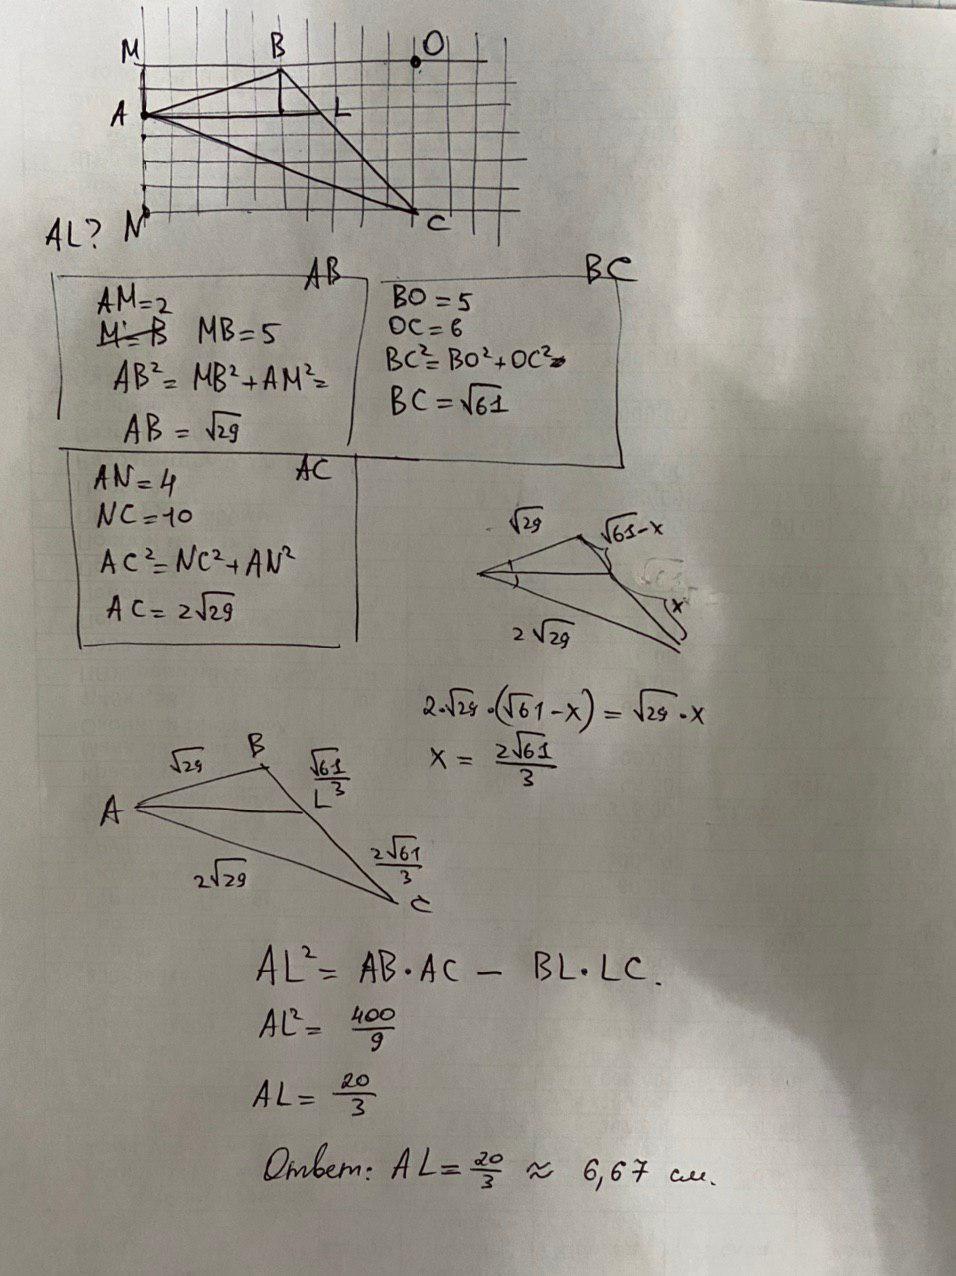 M B O
A L
N C
AL?
AB
AM=2
M=B MB=5
AB²= MB²+AM²=
AB = √29
BC
BO=5
OC=6
BC²=BO²+OC²=
BC=√61
AC
AN=4
NC=10
AC²=NC²+AN²
AC=2√29
√29 √61-x
x
2√29
2·√29·(√61-x)=√29·x
x = 2√61/3
√29 B √61/3
A L
2√61/3
2√29
C
AL²= AB·AC - BL·LC.
AL²= 400/9
AL= 20/3
Ответ: AL=20/3 ≈ 6,67 см.